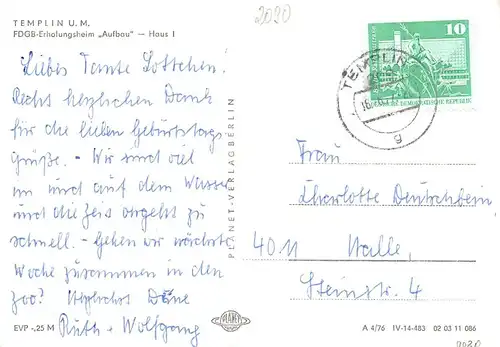 TEMPLIN U. M.
FDGB-Erholungsheim „Aufbau" — Haus I
2020
Liebes Tante Lottchen!
Recht herzlichen Dank
für die lieben Geburtstags-
grüße. - Wir sind viel
im und auf dem Wasser
und die Zeit vergeht zu
schnell. - Gehen wir nächste
Woche zusammen in den
Zoo? Herzlichst Deine
Ruth + Wolfgang
EVP -,25 M
PLANET-VERLAG BERLIN
PLANET
10
DEMOKRATISCHE REPUBLIK
TEMPLIN
g
Frau
Charlotte Deutschbein
4011 Halle,
Steinstr. 4
A 4/76 IV-14-483 02 03 11 086
2020